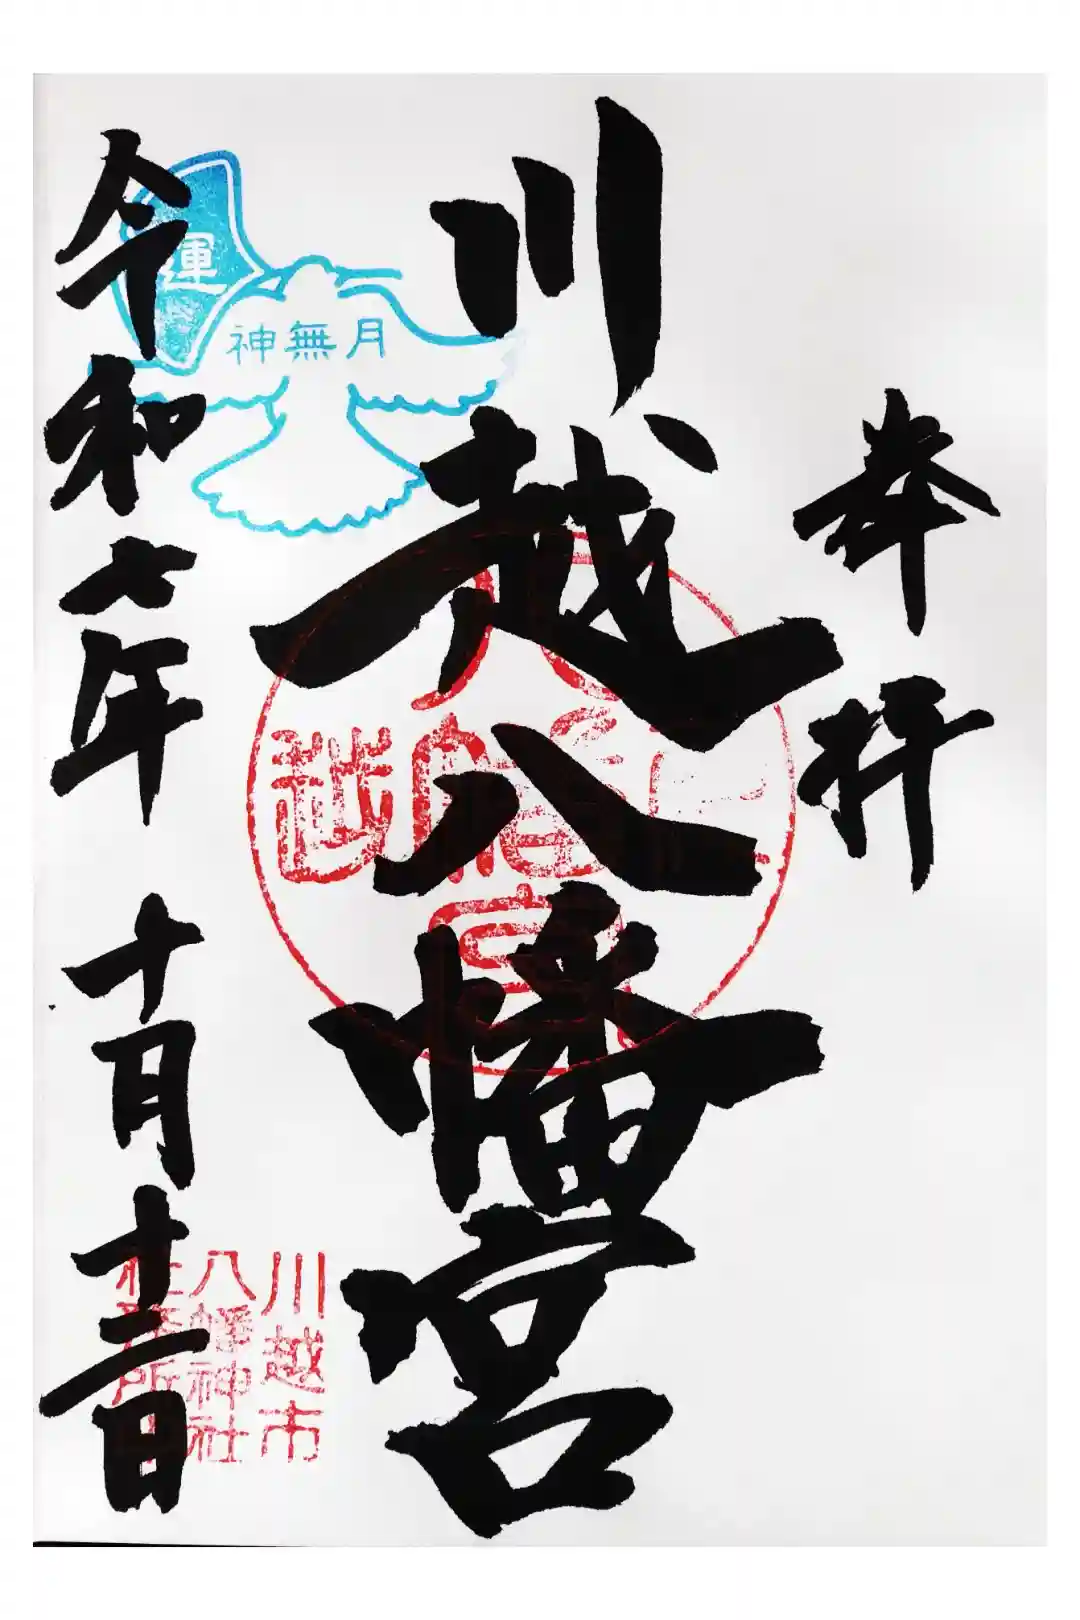 奉拝
川越八幡宮
令和七年 十月十二日
運
神無月
川越市
八幡神社
社務所印